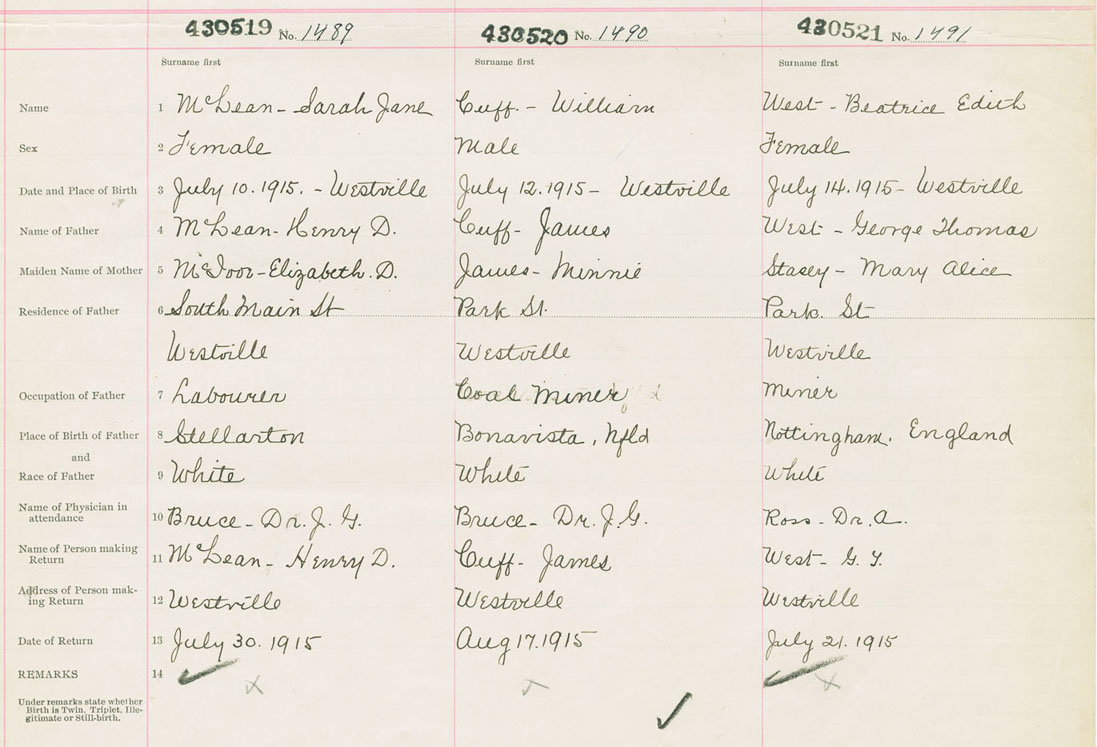 430519 No. 1489 430520 No. 1490 430521 No. 1491
Surname first Surname first Surname first
Name 1 McLean - Sarah Jane Cuff - William West - Beatrice Edith
Sex 2 Female Male Female
Date and Place of Birth 3 July 10. 1915. - Westville July 12. 1915 - Westville July 14. 1915 - Westville
Name of Father 4 McLean - Henry D. Cuff - James West - George Thomas
Maiden Name of Mother 5 McIvor - Elizabeth. D. James - Minnie Stasey - Mary Alice
Residence of Father 6 South Main St Park St. Park. St
Westville Westville Westville
Occupation of Father 7 Labourer Coal Miner Miner
Place of Birth of Father 8 Stellarton Bonavista, Nfld Nottingham, England
and
Race of Father 9 White White White
Name of Physician in
attendance 10 Bruce - Dr. J. G. Bruce - Dr. J. G. Ross - Dr. A.
Name of Person making
Return 11 McLean - Henry D. Cuff - James West - G. T.
Address of Person mak-
ing Return 12 Westville Westville Westville
Date of Return 13 July 30. 1915 Aug 17. 1915 July 21. 1915
REMARKS 14
Under remarks state whether
Birth is Twin, Triplet, Ille-
gitimate or Still-birth.